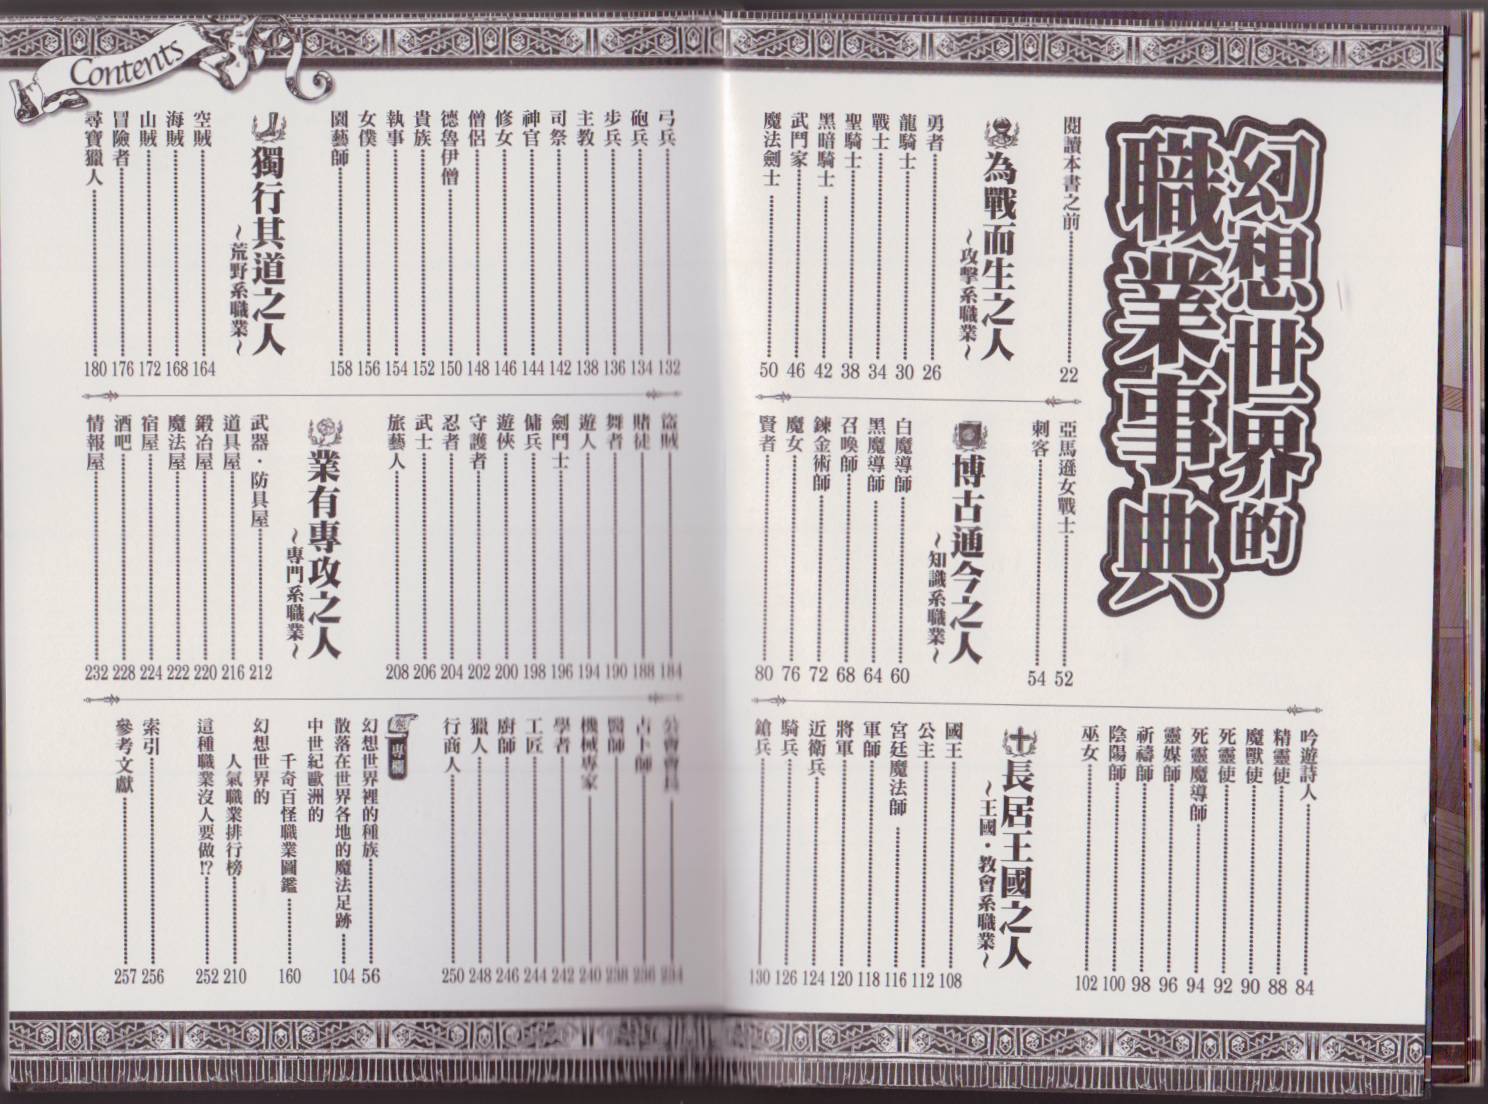 Contents
幻想世界的
職業事典
閱讀本書之前 22
為戰而生之人
~攻擊系職業~
勇者 26
龍騎士 30
戰士 34
聖騎士 38
黑暗騎士 42
武鬥家 46
魔法劍士 50
亞馬遜女戰士 52
刺客 54
博古通今之人
~知識系職業~
白魔導師 60
黑魔導師 64
召喚師 68
鍊金術師 72
魔女 76
賢者 80
吟遊詩人 84
精靈使 88
魔獸使 90
死靈使 92
死靈魔導師 94
靈媒師 96
祈禱師 98
陰陽師 100
巫女 102
長居王國之人
~王國・教會系職業~
國王 108
公主 112
宮廷魔法師 116
軍師 118
將軍 120
近衛兵 124
騎兵 126
鎗兵 130
弓兵 132
砲兵 134
步兵 136
主教 138
司祭 142
神官 144
修女 146
僧侶 148
德魯伊僧 150
貴族 152
執事 154
女僕 156
園藝師 158
獨行其道之人
~荒野系職業~
空賊 164
海賊 168
山賊 172
冒險者 176
尋寶獵人 180
盜賊 184
賭徒 188
舞者 190
遊人 194
劍鬥士 196
傭兵 198
遊俠 200
守護者 202
忍者 204
武士 206
旅藝人 208
業有專攻之人
~專門系職業~
武器・防具屋 212
道具屋 216
鍛冶屋 220
魔法屋 222
宿屋 224
酒吧 228
情報屋 232
公會會長 234
占卜師 236
醫師 238
機械專家 240
學者 242
工匠 244
廚師 246
獵人 248
行商人 250
專欄
幻想世界裡的種族 56
散落在世界各地的魔法足跡 104
中世紀歐洲的
千奇百怪職業圖鑑 160
幻想世界的
人氣職業排行榜 210
這種職業沒人要做!? 252
索引 256
參考文獻 257